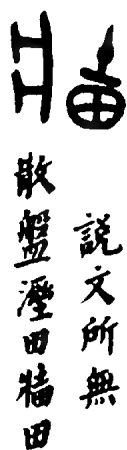 說文所無
散盤溼田田